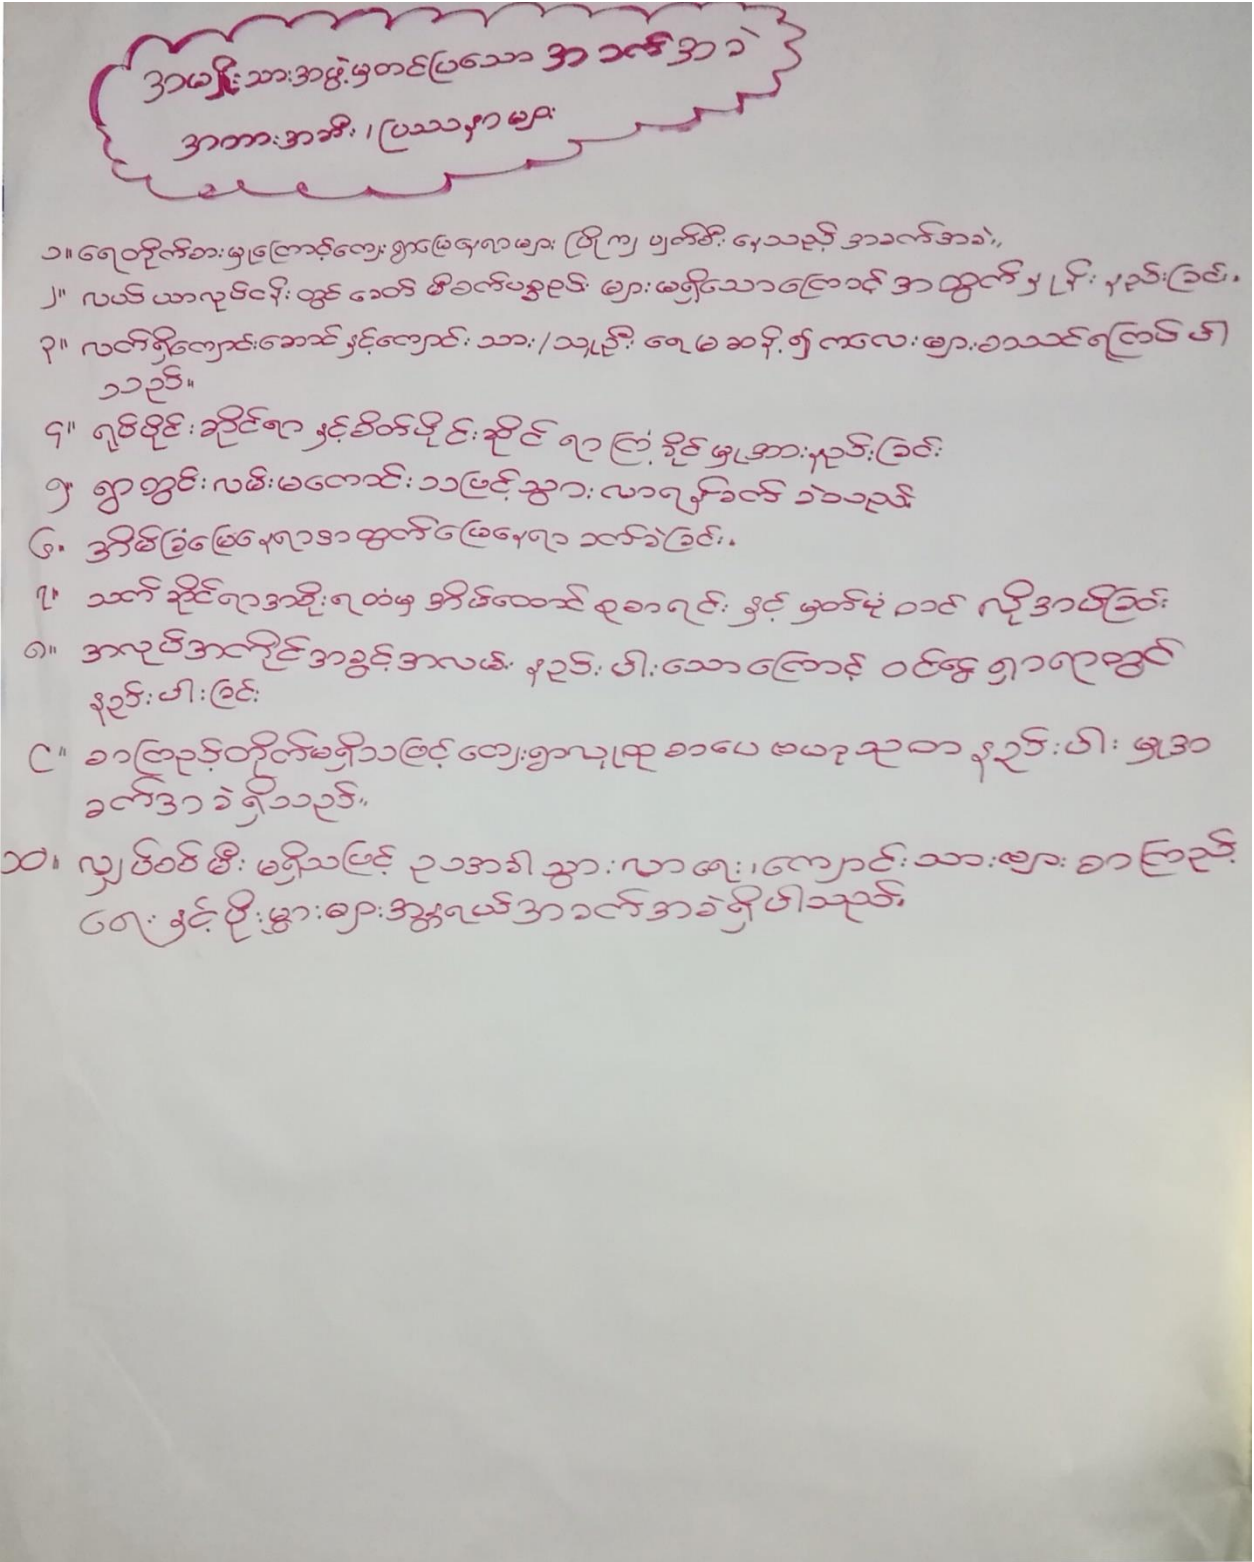 အမျိုးသားအဖွဲ့မှတင်ပြသော အခက်အခဲ
အတားအဆီး၊ ပြဿနာများ
၁။ ရေတိုက်စားမှုကြောင့်ကျေးရွာမြေနေရာများ ပြိုကျ ပျက်စီးနေသည့် အခက်အခဲ။
၂။ လယ်ယာလုပ်ငန်းတွင် ခေတ်မီစက်ပစ္စည်း များမရှိသောကြောင့် အထွက်နှုန်း နည်းခြင်း။
၃။ လက်ရှိကျောင်းဆောင်နှင့်ကျောင်းသား/သူဦးရေ မဆန့်၍ ကလေးများစာသင်ရကြပ်ပါ
သည်။
၄။ ရုပ်ပိုင်းဆိုင်ရာ နှင့်စိတ်ပိုင်းဆိုင်ရာ ကြံ့ခိုင်မှုအားနည်းခြင်း
၅။ ရွာတွင်းလမ်းမကောင်းသဖြင့်သွားလာရန်ခက်ခဲသည်
၆။ အိမ်ခြံမြေနေရာအတွက်မြေနေရာ ခက်ခဲခြင်း။
၇။ သက်ဆိုင်ရာအစိုးရထံမှ အိမ်ထောင်စုစာရင်း နှင့် မှတ်ပုံတင် လိုအပ်ခြင်း
၈။ အလုပ်အကိုင်အခွင့်အလမ်း နည်းပါးသောကြောင့် ဝင်ငွေရှာရာတွင်
နည်းပါးခြင်း
၉။ စာကြည့်တိုက်မရှိသဖြင့် ကျေးရွာလူထု စာပေ ဗဟုသုတ နည်းပါးမှုအ
ခက်အခဲရှိသည်။
၁၀။ လျှပ်စစ်မီးမရှိသဖြင့် ညအခါသွားလာရေး၊ ကျောင်းသားများ စာကြည့်
ရေး နှင့်ပိုးမွှားများအန္တရယ်အခက်အခဲရှိပါသည်